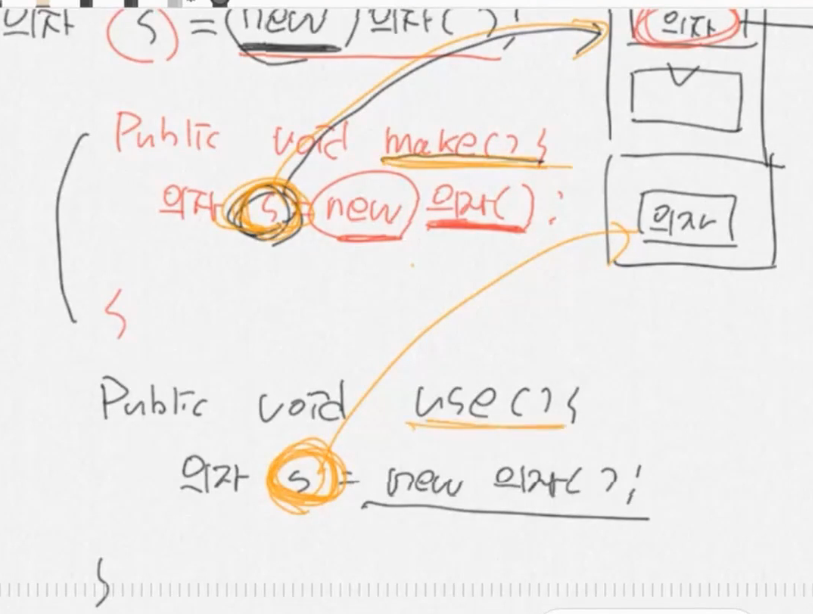 의자 s = new 의자( );
의자
Public void make( ) {
의자 s = new 의자( );
의자
}
Public void use( ) {
의자 s = new 의자( );
}